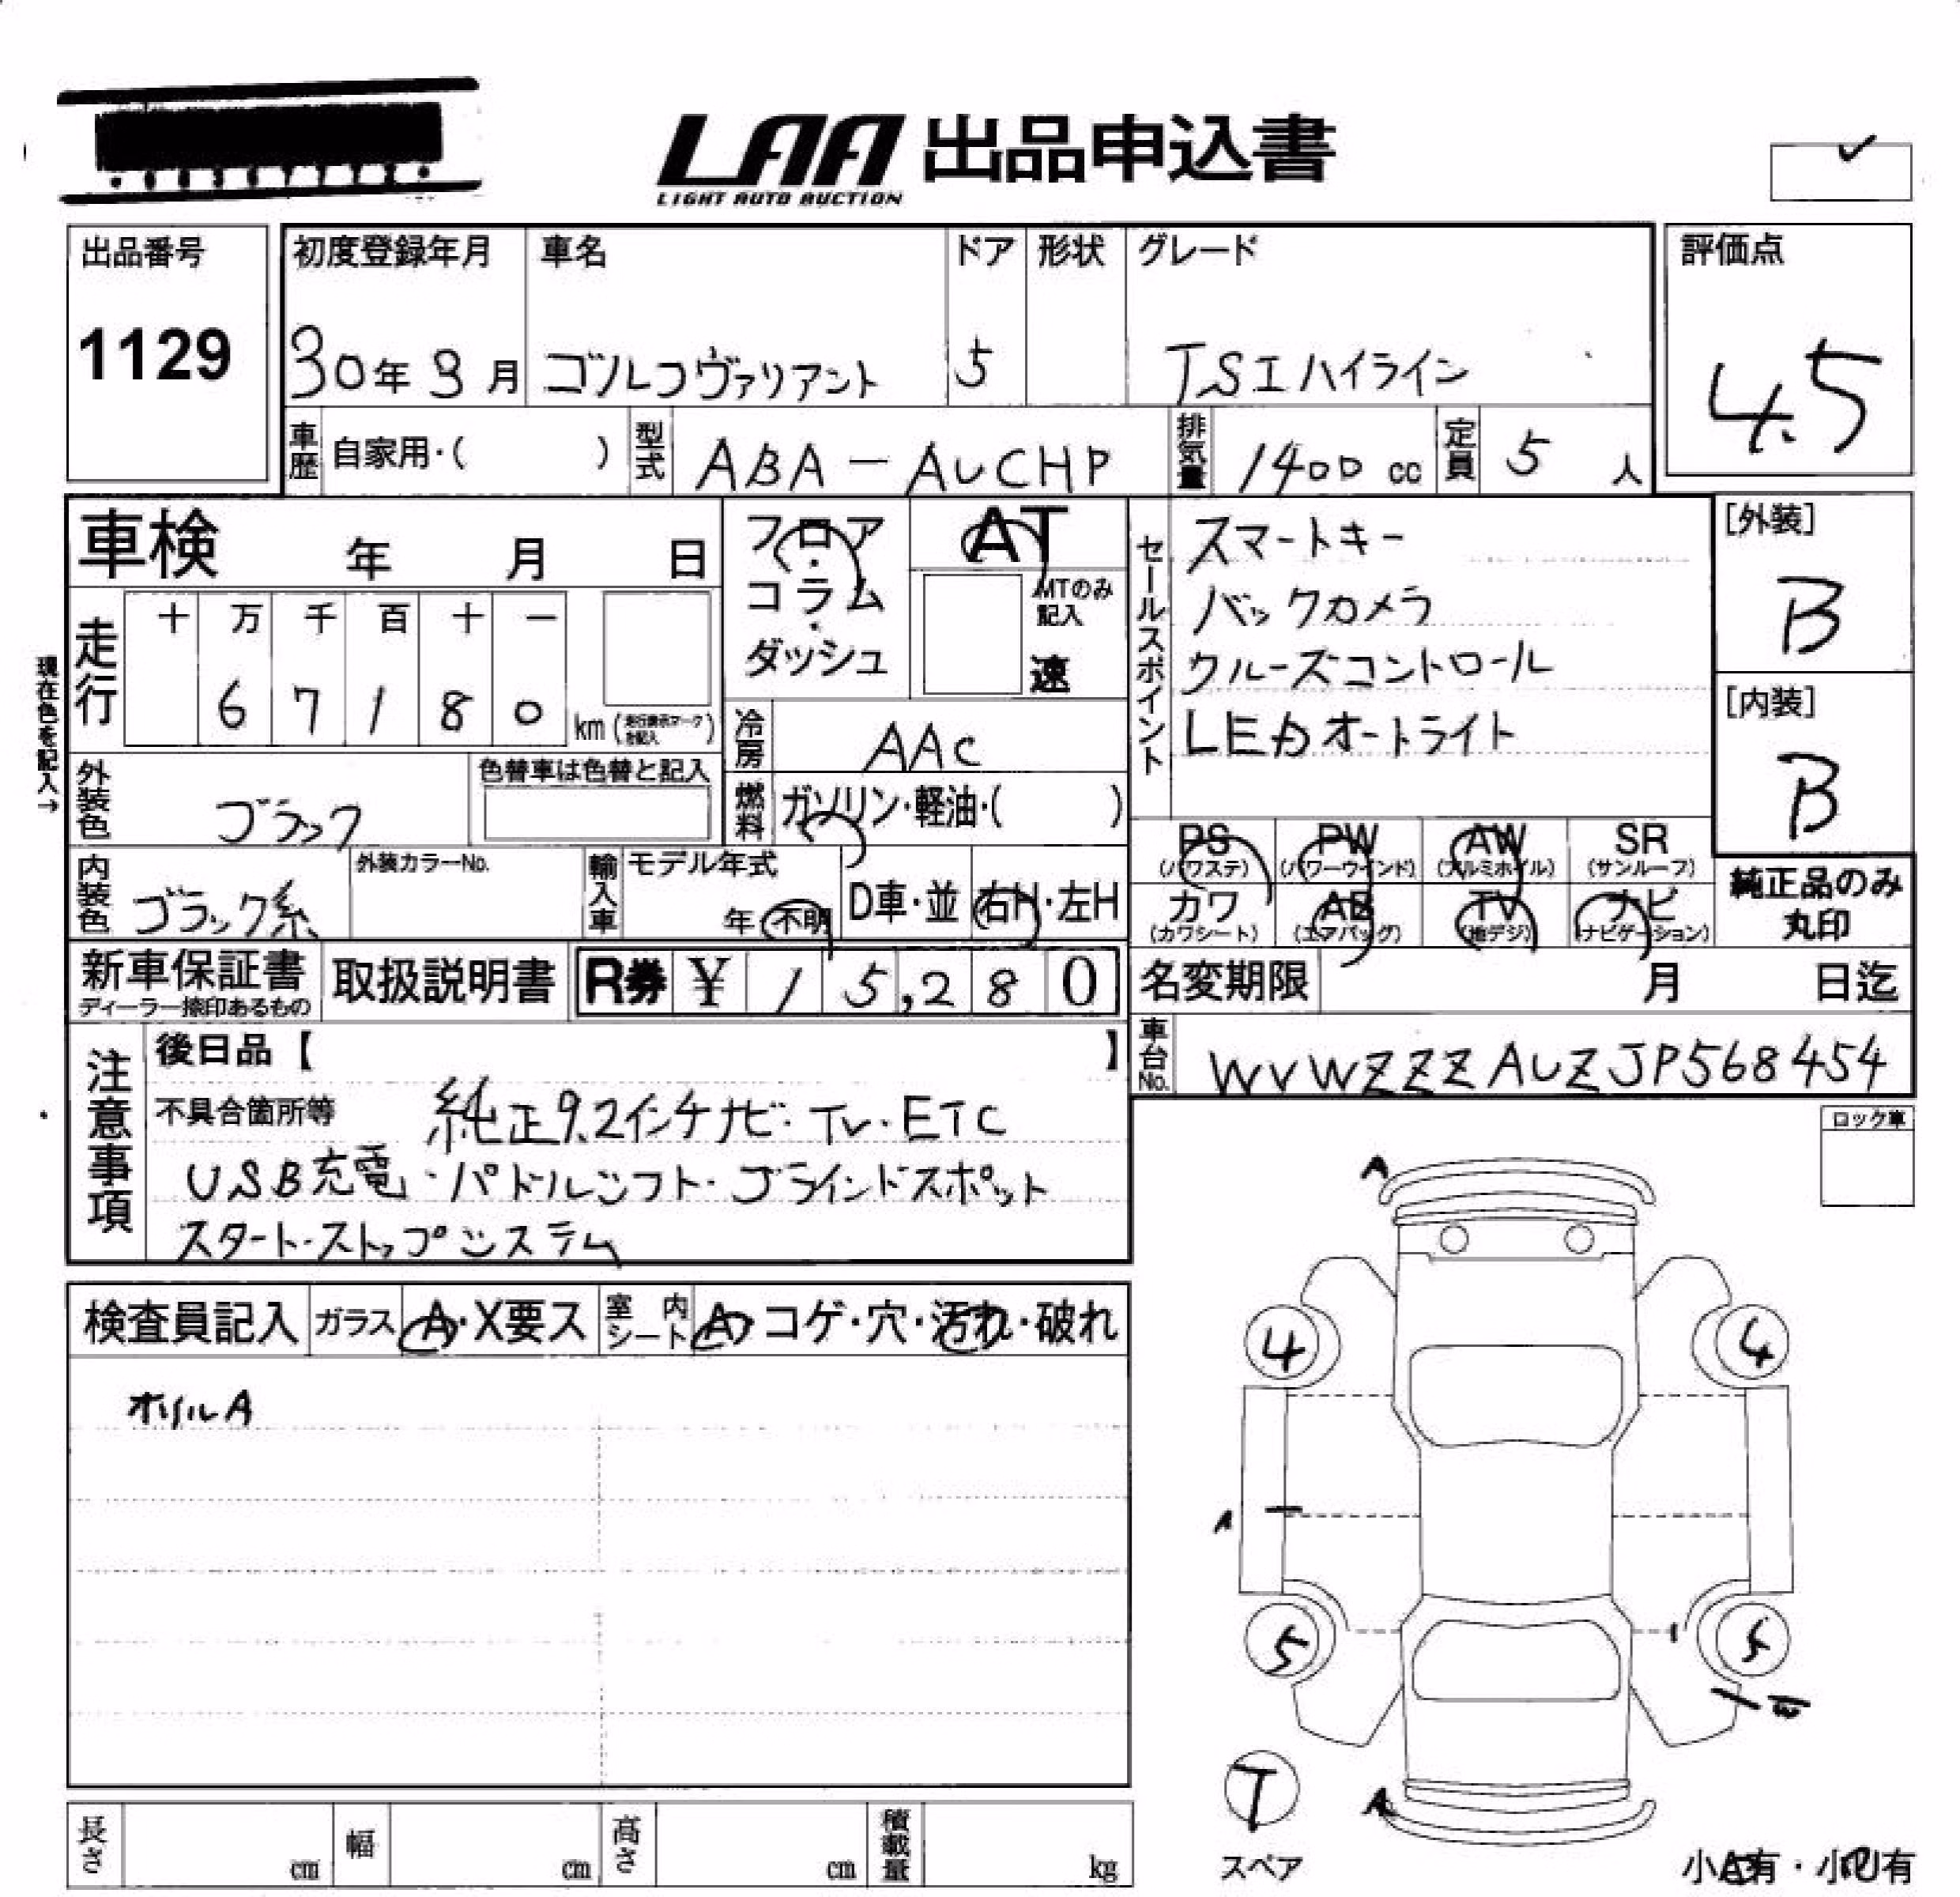 LAA 出品申込書
LIGHT AUTO AUCTION
出品番号 初度登録年月 車名 ドア 形状 グレード 評価点
1129 30年9月 ゴルフヴァリアント 5 TSIハイライン 4.5
車歴 自家用・( ) 型式 ABA-AUCHP 排気量 1400 cc 定員 5 人
車検 年 月 日 フロア・コラム・ダッシュ AT
MTのみ記入 速
走行 十 万 千 百 十 一
6 7 1 8 0 km (走行表示マークを記入)
現在色を記入→
冷房 AAC
外装色 ブラック 色替車は色替と記入
燃料 ガソリン・軽油・( )
内装色 ブラック系 外装カラーNo. 輸入車 モデル年式 年 不明 D車・並 右H・左H
セールスポイント
スマートキー
バックカメラ
クルーズコントロール
LEDオートライト
[外装]
B
[内装]
B
PS (パワステ) PW (パワーウインド) AW (アルミホイル) SR (サンルーフ)
カワ (カワシート) AB (エアバッグ) TV (地デジ) ナビ (ナビゲーション)
純正品のみ丸印
新車保証書 ディーラー捺印あるもの 取扱説明書 R券 ¥ 1 5,2 8 0
名変期限 月 日迄
車台No. WVWZZZAUZJP568454
注意事項
後日品【 】
不具合箇所等 純正9.2インチナビ・TV・ETC
USB充電・パドルシフト・ブラインドスポット
スタート・ストップシステム
ロック車
検査員記入 ガラス A・X要ス 室内シート A・コゲ・穴・汚れ・破れ
ホイルA
A
4 4
A
5 5
W
T
A
スペア
小A有・小U有
長さ cm 幅 cm 高さ cm 積載量 kg